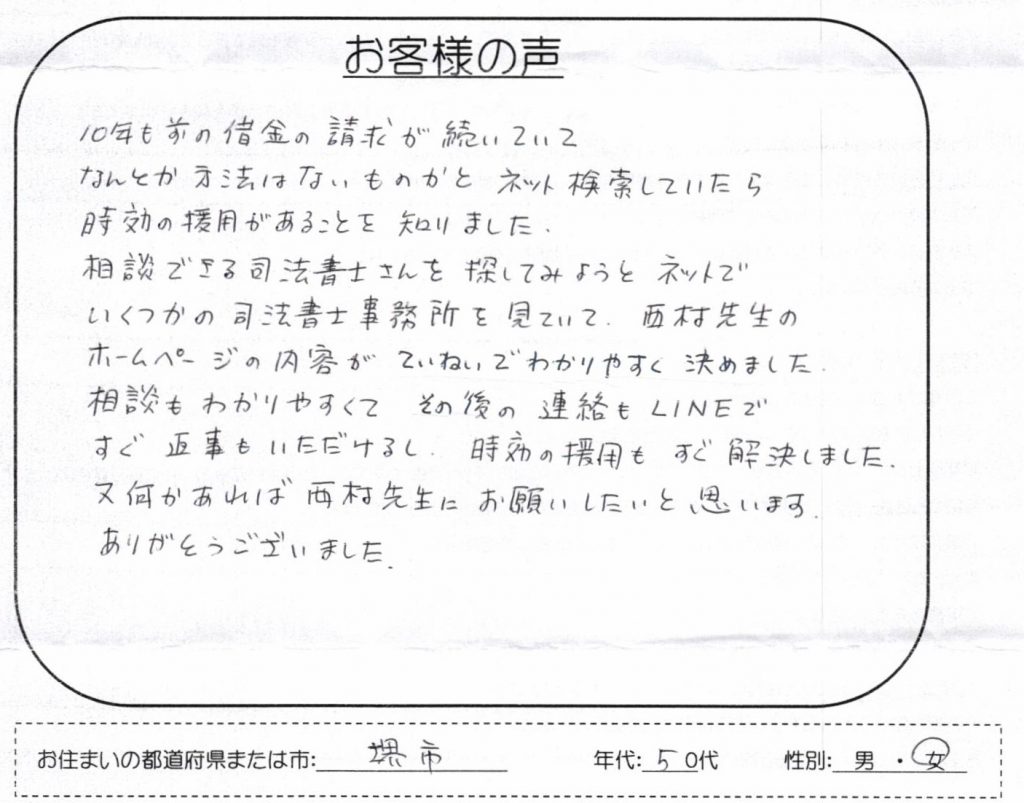 お客様の声
10年も前の借金の請求が続いていて
なんとか方法はないものかと ネット検索していたら
時効の援用があることを 知りました.
相談できる司法書士さんを 探してみようと ネットで
いくつかの司法書士事務所を見ていて. 西村先生の
ホームページの内容が ていねいでわかりやすく 決めました.
相談もわかりやすくて その後の連絡もLINEで
すぐ返事もいただけるし. 時効の援用も すぐ解決しました.
又何かあれば 西村先生に お願いしたいと思います.
ありがとうございました.
お住まいの都道府県または市: 堺市 年代: 50代 性別: 男 ・ 女